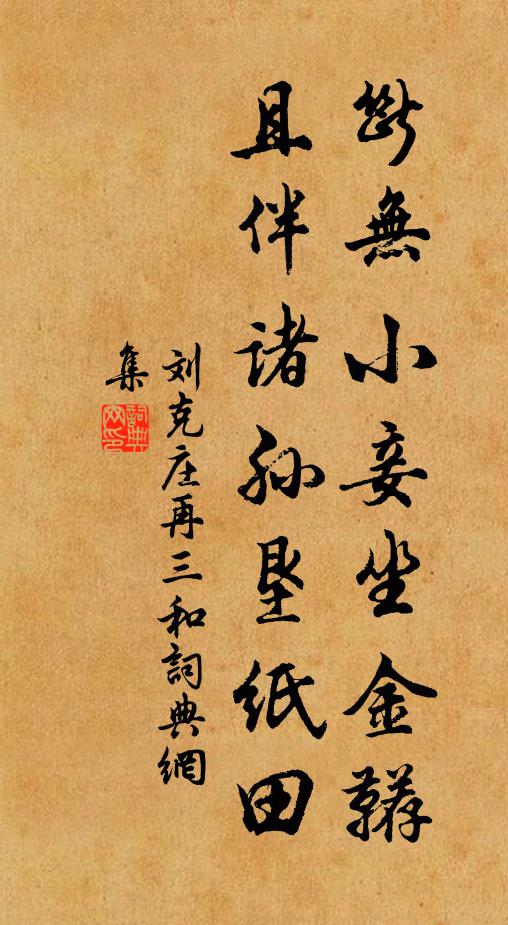 断無小妾坐金鞯
且伴诸孙垦纸田
刘克庄再三和詞典網
集
詞典
网印